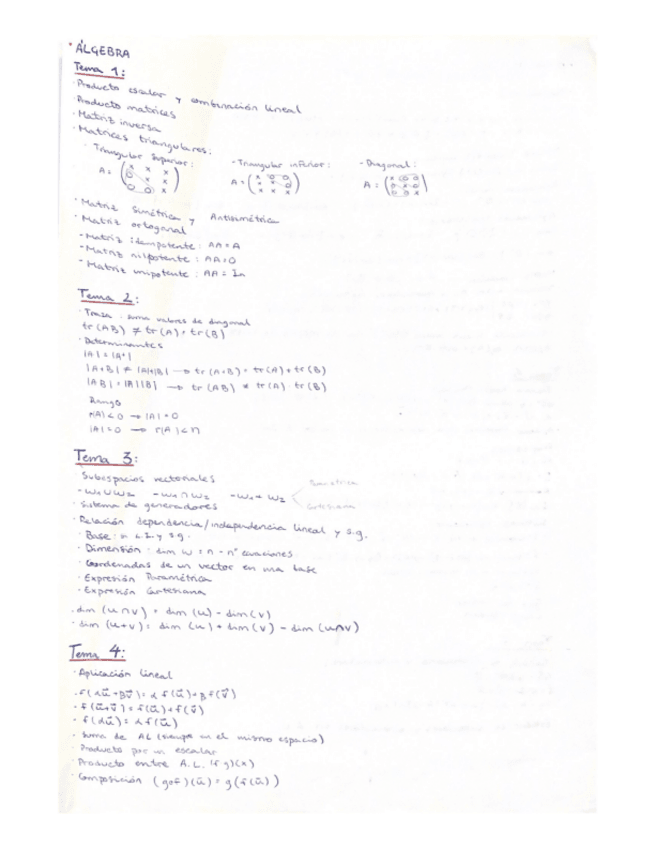 · ÁLGEBRA
Tema 1:
· Producto escalar y combinación lineal
· Producto matrices
· Matriz inversa
· Matrices triangulares:
- Triangular superior: - Triangular inferior: - Diagonal:
A = (x x x / 0 x x / 0 0 x) A = (x 0 0 / x x 0 / x x x) A = (x 0 0 / 0 x 0 / 0 0 x)
· Matriz simétrica y Antisimétrica
· Matriz ortogonal
- Matriz idempotente: AA = A
- Matriz nilpotente: AA = 0
- Matriz unipotente: AA = In
Tema 2:
· Traza: suma valores de diagonal
tr (AB) ≠ tr (A) · tr (B)
· Determinantes
|A| = |Aᵗ|
|A+B| ≠ |A|+|B| → tr (A+B) = tr (A) + tr (B)
|AB| = |A||B| → tr (AB) ≠ tr (A) · tr (B)
Rango
r(A) < → |A| = 0
|A| = 0 → r(A) < n
Tema 3:
· Subespacios vectoriales
- W₁ ∪ W₂ - W₁ ∩ W₂ - W₁ + W₂ Paramétrica
Cartesiana
· Sistema de generadores
· Relación dependencia/independencia lineal y s.g.
· Base: L.I. y s.g.
· Dimensión: dim W = n - nº ecuaciones
· Coordenadas de un vector en una base
· Expresión Paramétrica
· Expresión Cartesiana
· dim (u∩v) = dim (u) - dim (v)
· dim (u+v) = dim (u) + dim (v) - dim (u∩v)
Tema 4:
· Aplicación lineal
· f(αu⃗ + Bv⃗) = α f(u⃗) + B f(v⃗)
· f(u⃗+v⃗) = f(u⃗) + f(v⃗)
· f(αu⃗) = α f(u⃗)
· Suma de AL (siempre en el mismo espacio)
· Producto por un escalar
· Producto entre A.L. (f g)(x)
· Composición (gof)(u⃗) = g(f(u⃗))